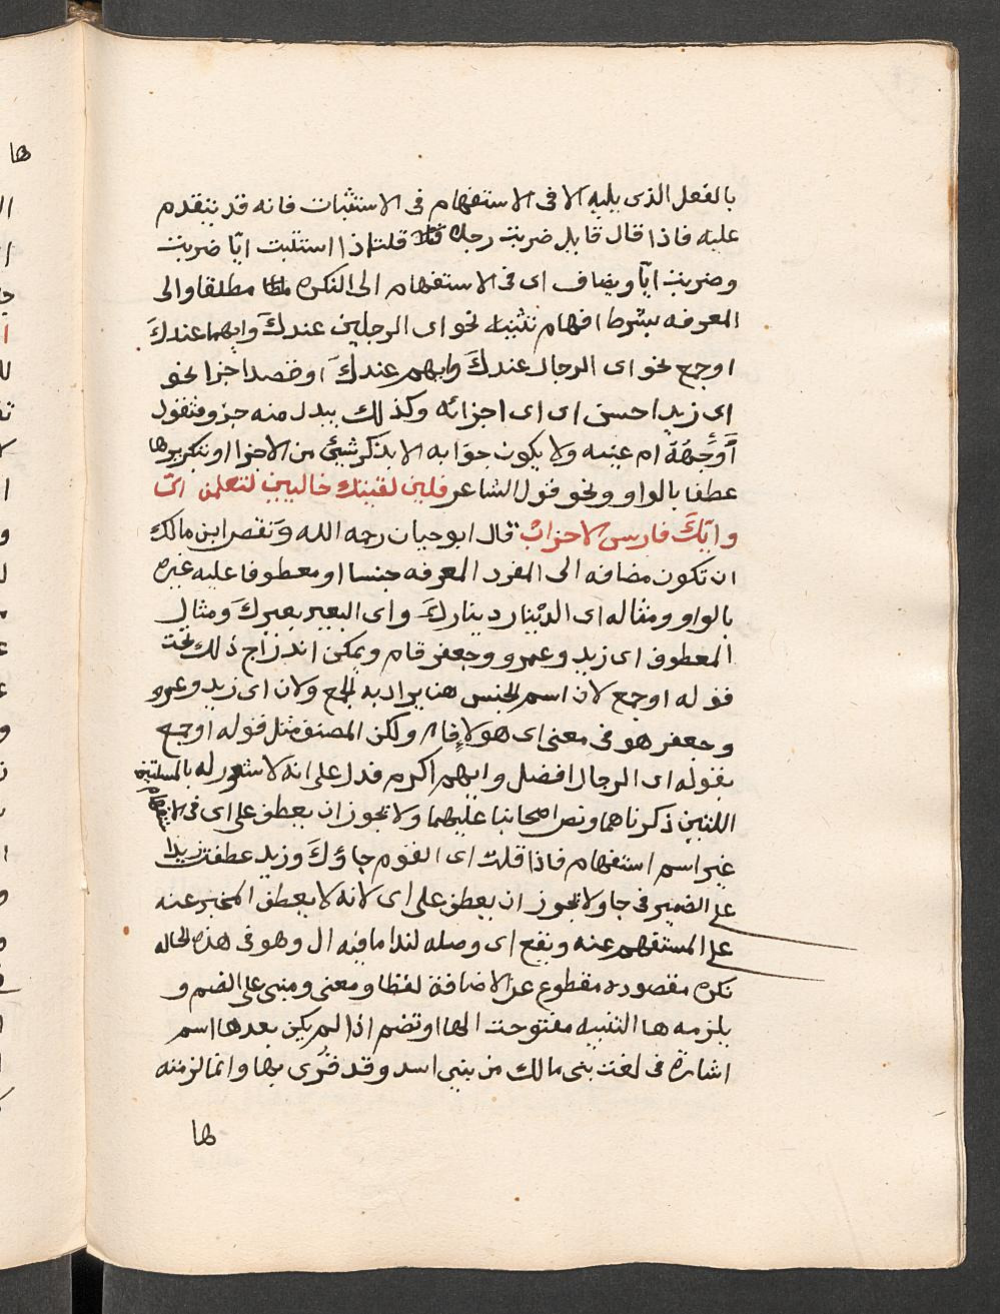 بالفعل الذى يليه الا فى الاستفهام فى الاستثبات فانه قد يتقدم
عليه فاذا قال قايل ضربت رجلا قلت اذا استثبت ايّا ضربت
وضربت ايّا ويضاف اى فى الاستفهام الى النكره مطلقا والى
المعرفه بشرط افهام تثنيه نحو اى الرجلين عندكَ وايهما عندكَ
او جمع نحو اى الرجال عندكَ وايهم عندكَ او قصد اجزا نحو
اى زيد احسن اى اى اجزائه وكذلك يبدل منه جزو فتقول
أَوَجْهَهُ ام عينه ولا يكون جوابه الا بذكر شيئ من الاجزا او بتكريرها
عطفا بالواو ونحو قول الشاعر فلين لقيتك خاليين لتعلمن اىّ
وايّكَ فارس الاحزابْ قال ابو حيان رحمه الله ونقص ابن مالك
ان تكون مضافه الى المفرد المعرفه جنسا او معطوفا عليه غيره
بالواو ومثاله اى الدينار دينارك واى البعير بعيركَ ومثال
المعطوف اى زيد وعمرو وجعفر قام ويمكن اندراج ذلك تحت
قوله او جمع لان اسم الجنس هنا يراد به الجمع ولان اى زيد وعمرو
وجعفر هو فى معنى اى هولاءِ قام ولكن المصنف مثل قوله او جمع
بقوله اى الرجال افضل وايهم اكرم فدل على انه لا شعور له بالمسلتين
اللتين ذكرناهما ونص اصحابنا عليهما ولا يجوز ان يعطف على اى فى الاستفهام
غير اسم استفهام فاذا قلت اى القوم جاؤك وزيد عطفت زيدا
على الضمير فى جاو ولا يجوز ان يعطف على اى لانه لا يعطف المخبر عنه
على المستفهم عنه ويقع اى وصله لندا ما فيه ال وهو فى هذه الحاله
نكره مقصوده مقطوع عن الاضافة لفظا ومعنى ومبنى على الضم و
يلزمه ها التنبيه مفتوحت الها او تضم اذا لم يكن بعدها اسم
اشارة فى لغت بنى مالك من بنى اسد وقد قُرى بها وانما لزمته
ها